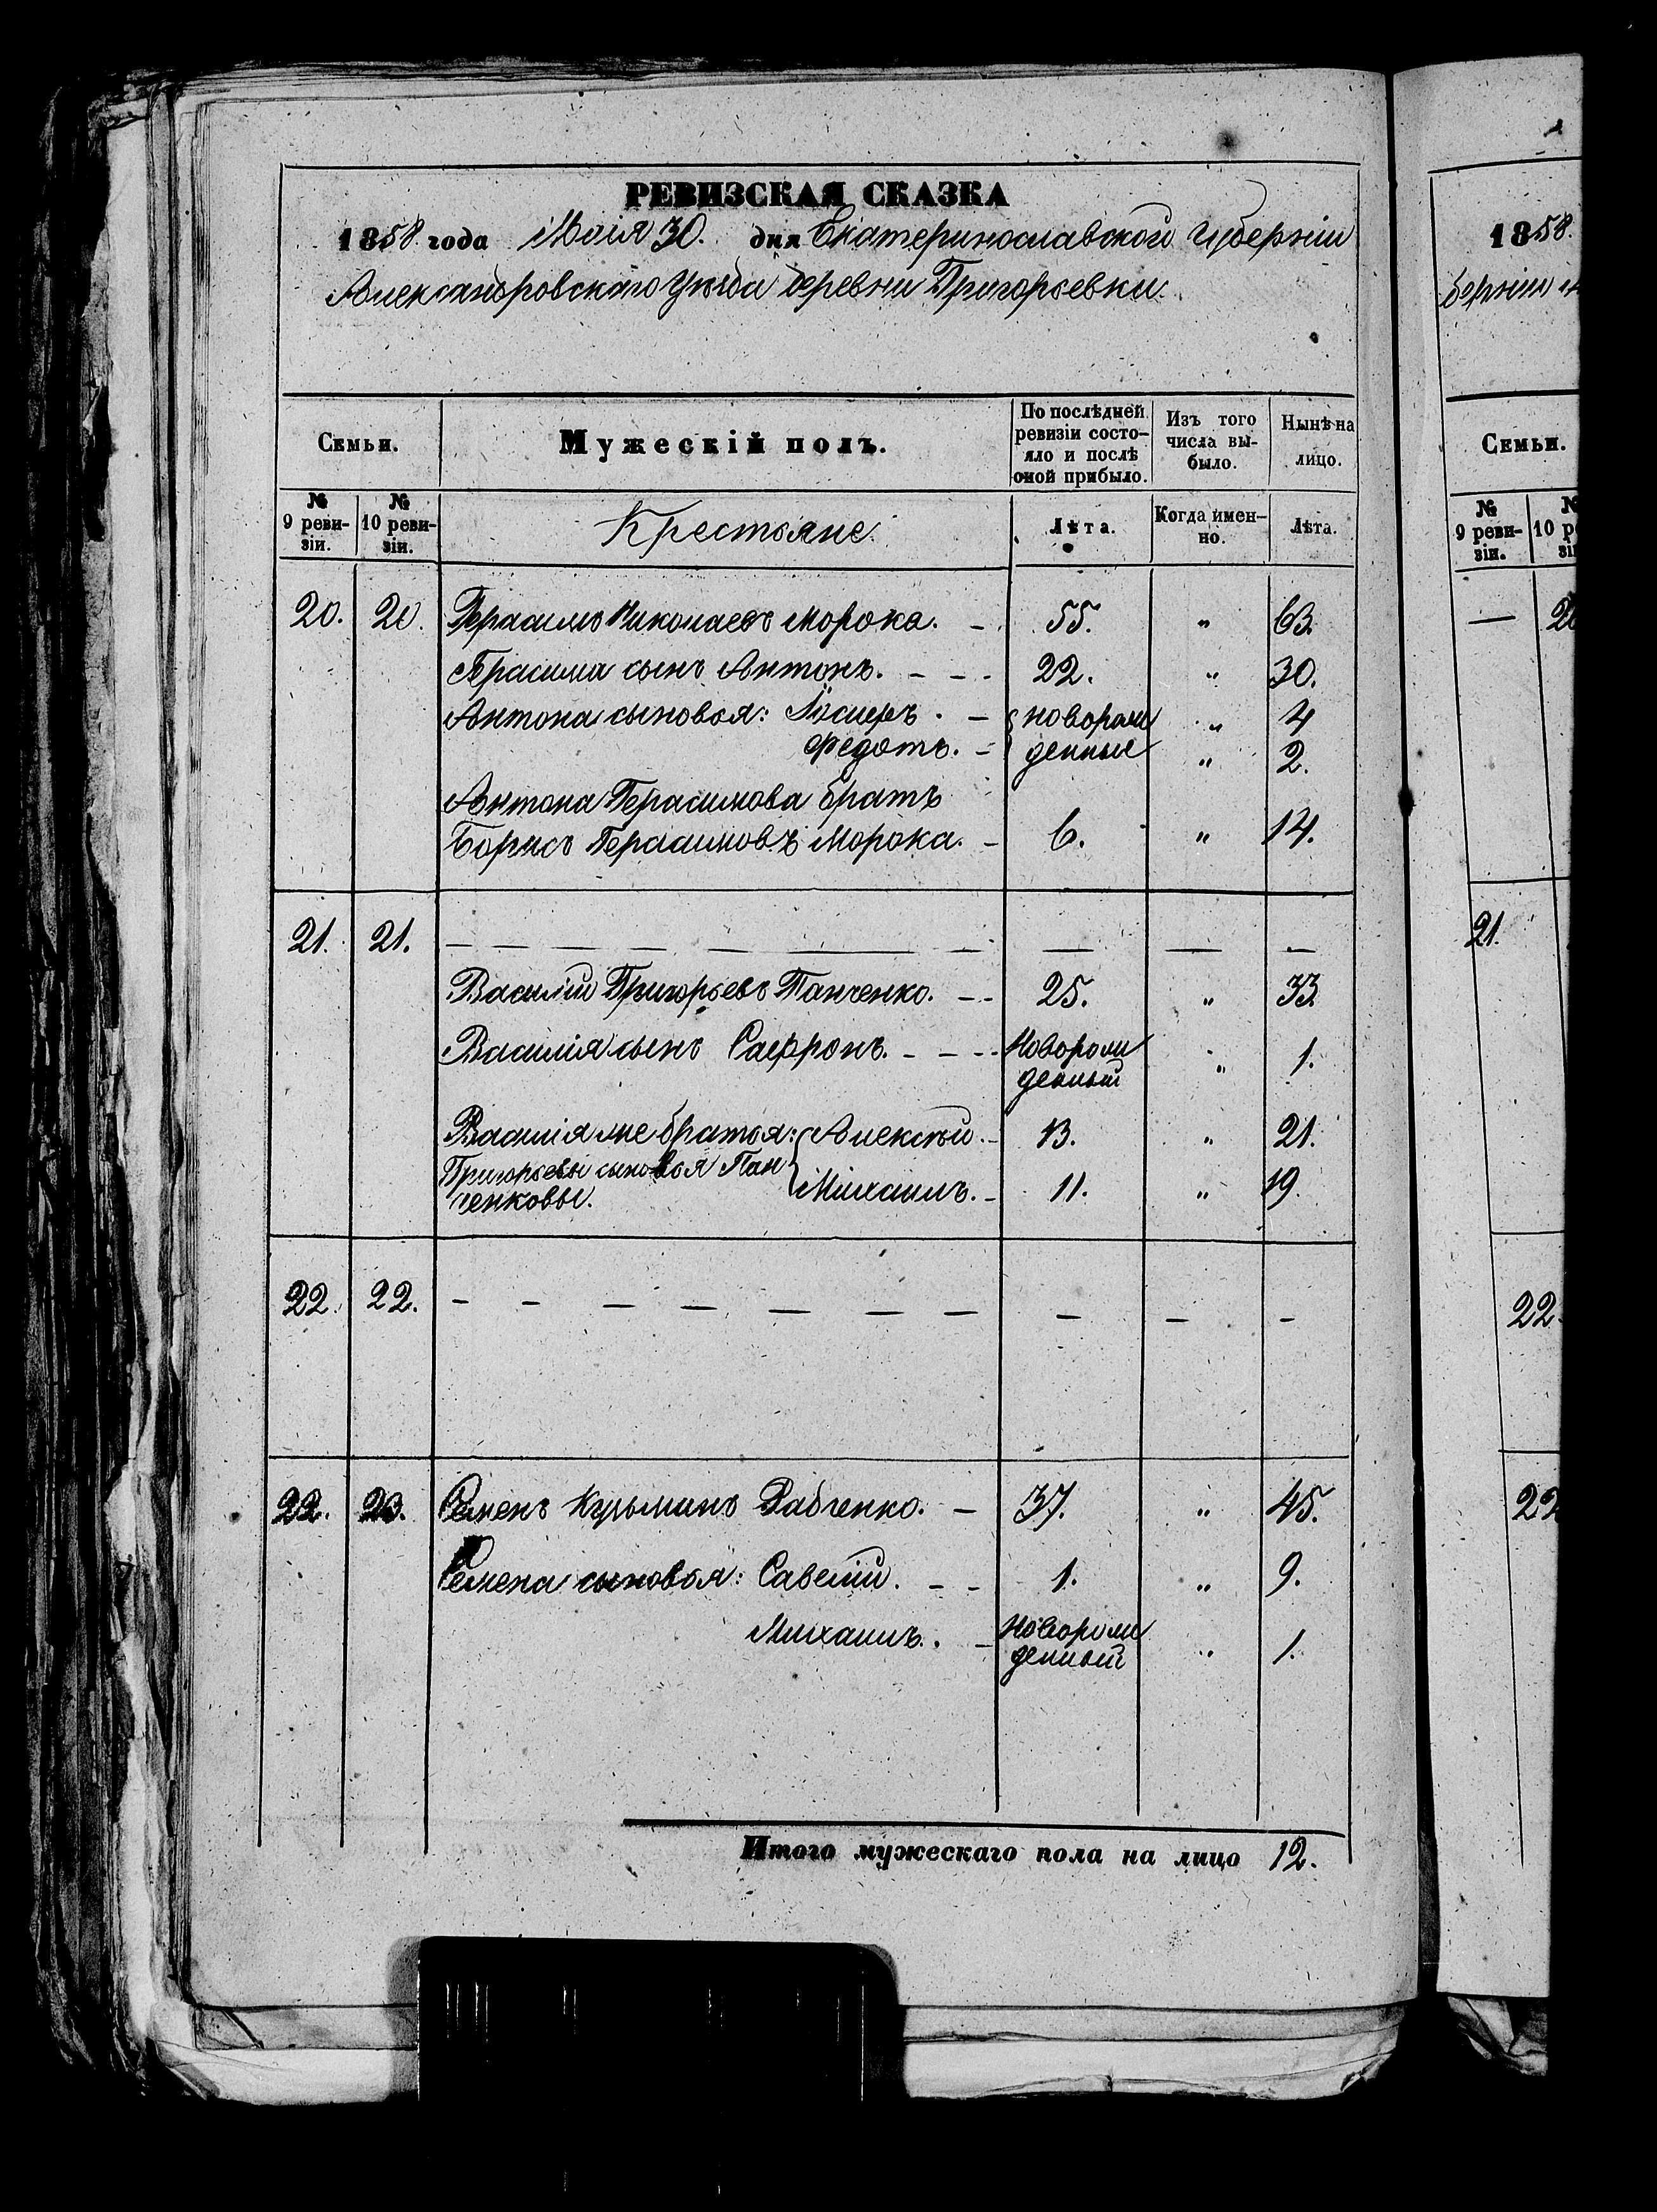 РЕВИЗСКАЯ СКАЗКА
1858 года Маія 30. дня Екатеринославской губерніи
Александровскаго уѣзда деревни Григорьевки.
Семьи.
Мужескій полъ.
По послѣдней ревизіи состо-яло и послѣ оной прибыло.
Изъ того числа вы-было.
Нынѣ на лицо.
№ 9 реви-зіи.
№ 10 реви-зіи.
Крестьяне.
Лѣта.
Когда имен-но.
Лѣта.
20. 20. Герасимъ Николаевъ Морока. - 55. " 63.
Герасима сынъ Антонъ. - - - 22. " 30.
Антона сыновья: Іосифъ. - новорож " 4
Федотъ. - денные " 2.
Антона Герасимова братъ
Борисъ Герасимовъ Морока. - 6. " 14.
21. 21. — — — — — — — — — —
Василій Григорьевъ Панченко. - - 25. " 33.
Василія сынъ Сафронъ. - - - Новорож
денный " 1.
Василія же братья: Алексѣй. - 13. " 21.
Григорьевы сыновья Пан
ченковы. Михаилъ. - 11. " 19.
22. 22. - - - - - - - - - -
22. 23. Семенъ Кузьминъ Рабченко. - 37. " 45.
Семена сыновья: Савелій. - - 1. " 9.
Михаилъ. - Новорож
денный " 1.
Итого мужескаго пола на лицо 12.
1858.
берніи
Семьи.
№ 9 реви-зіи.
—
21.
22.
22